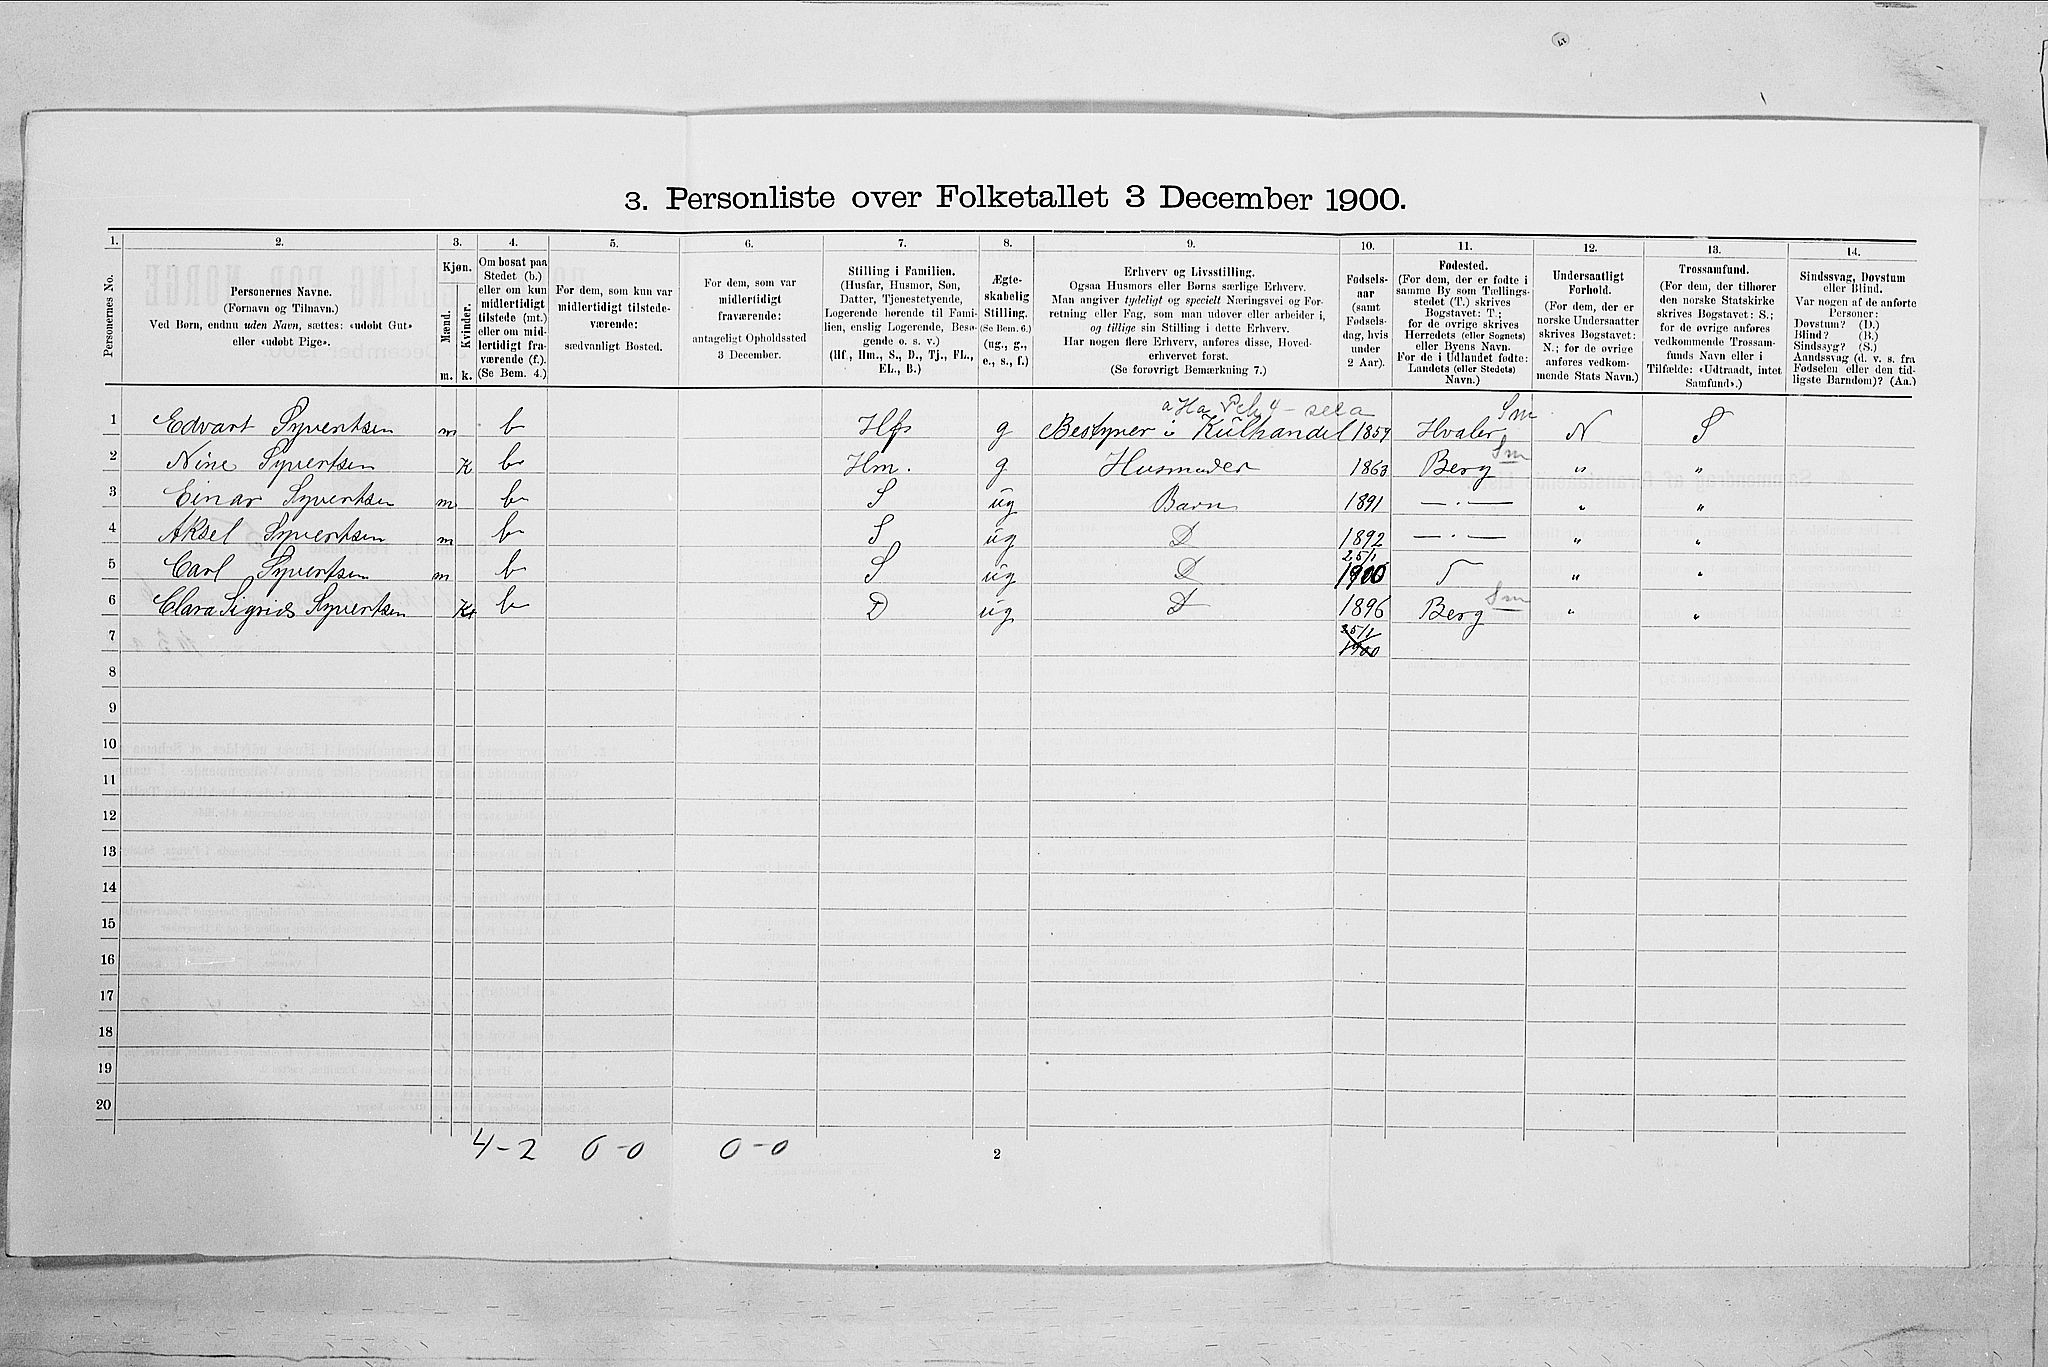 3. Personliste over Folketallet 3 December 1900.
1. 2. 3. 4. 5. 6. 7. 8. 9. 10. 11. 12. 13. 14.
Personernes No.
Personernes Navne.
(Fornavn og Tilnavn.)
Ved Børn, endnu uden Navn, sættes: «udøbt Gut»
eller «udøbt Pige».
Kjøn.
Mænd.
Kvinder.
m. k.
Om bosat paa
Stedet (b.)
eller om kun
midlertidigt
tilstede (mt.)
eller om mid-
lertidigt fra-
værende (f.).
(Se Bem. 4.)
For dem, som kun var
midlertidigt tilstede-
værende:
sædvanligt Bosted.
For dem, som var
midlertidigt
fraværende:
antageligt Opholdssted
3 December.
Stilling i Familien.
(Husfar, Husmor, Søn,
Datter, Tjenestetyende,
Logerende hørende til Fami-
lien, enslig Logerende, Besø-
gende o. s. v.)
(Hf., Hm., S., D., Tj., FL.,
EL., B.)
Ægte-
skabelig
Stilling.
(Se Bem. 6.)
(ug., g.,
e., s., f.)
Erhverv og Livsstilling.
Ogsaa Husmors eller Børns særlige Erhverv.
Man angiver tydeligt og specielt Næringsvei og For-
retning eller Fag, som man udøver eller arbeider i,
og tillige sin Stilling i dette Erhverv.
Har nogen flere Erhverv, anføres disse, Hoved-
erhvervet først.
(Se forøvrigt Bemærkning 7.)
Fødsels-
aar
(samt
Fødsels-
dag, hvis
under
2 Aar).
Fødested.
(For dem, der er fødte i
samme By som Tællings-
stedet (T.) skrives
Bogstavet: T.;
for de øvrige skrives
Herredets (eller Sognets)
eller Byens Navn.
For de i Udlandet fødte:
Landets (eller Stedets)
Navn.)
Undersaatligt
Forhold.
(For dem, der er
norske Undersaatter
skrives Bogstavet:
N.; for de øvrige
anføres vedkom-
mende Stats Navn.)
Trossamfund.
(For dem, der tilhører
den norske Statskirke
skrives Bogstavet: S.;
for de øvrige anføres
vedkommende Trossam-
funds Navn eller i
Tilfælde: «Udtraadt, intet
Samfund».)
Sindssvag, Døvstum
eller Blind.
Var nogen af de anførte
Personer:
Døvstum? (D.)
Blind? (B.)
Sindssyg? (S.)
Aandssvag (d. v. s. fra
Fødselen eller den tid-
ligste Barndom)? (Aa.)
Sm
1 Edvart Syvertsen m b Hf g Bestyrer i Kulhandel 1859 Hvaler N S
2 Nine Syvertsen K b Hm. g Husmoder 1863 Berg Sm " "
3 Einar Syvertsen m b S ug Barn 1891 —·— " "
4 Aksel Syvertsen m b S ug D 1892 —·— " "
5 Carl Syvertsen m b S ug D 25/1 1900 T " "
6 Clara Sigrid Syvertsen K b D ug D 1896 Berg Sm " "
7 25/1 1900
8
9
10
11
12
13
14
15
16
17
18
19
20
4-2 0-0 0-0
2